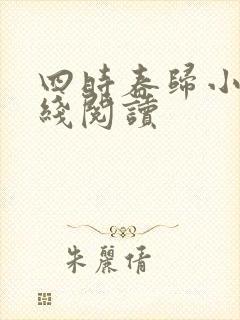 四時春歸小
綫閱讀
朱麗倩